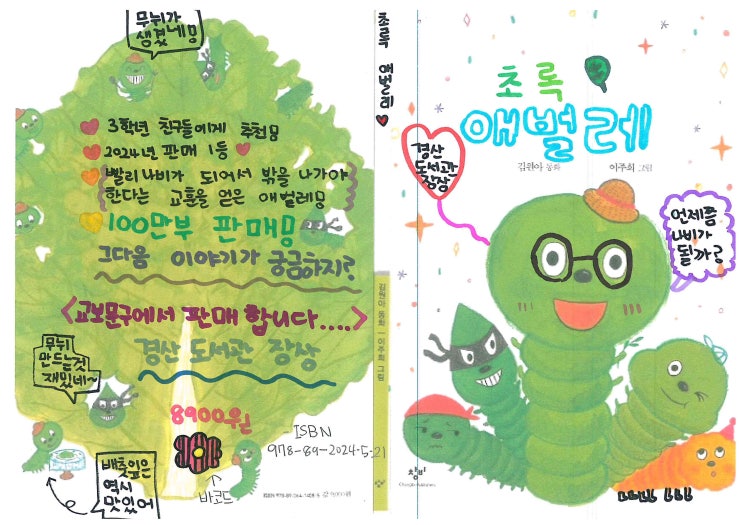 무늬가
생겼네!!
3학년 친구들에게 추천!!
2024년 판매 1등
빨리 나비가 되어서 밖을 나가야
한다는 교훈을 얻은 애벌레!!
100만부 판매!!
그다음 이야기가 궁금하지?
<교보문구에서 판매 합니다.....>
경산 도서관 장상
무늬
만드는것
재밌네~
8900원
ISBN
978-89-2024-5-21
바코드
배춧잎은
역시
맛있어
초록 애벌레
김원아 동화 | 이주희 그림
창비
초록
애벌레
김원아 동화
이주희 그림
경산
도서관
장상
언제쯤
나비가
될까?
창비